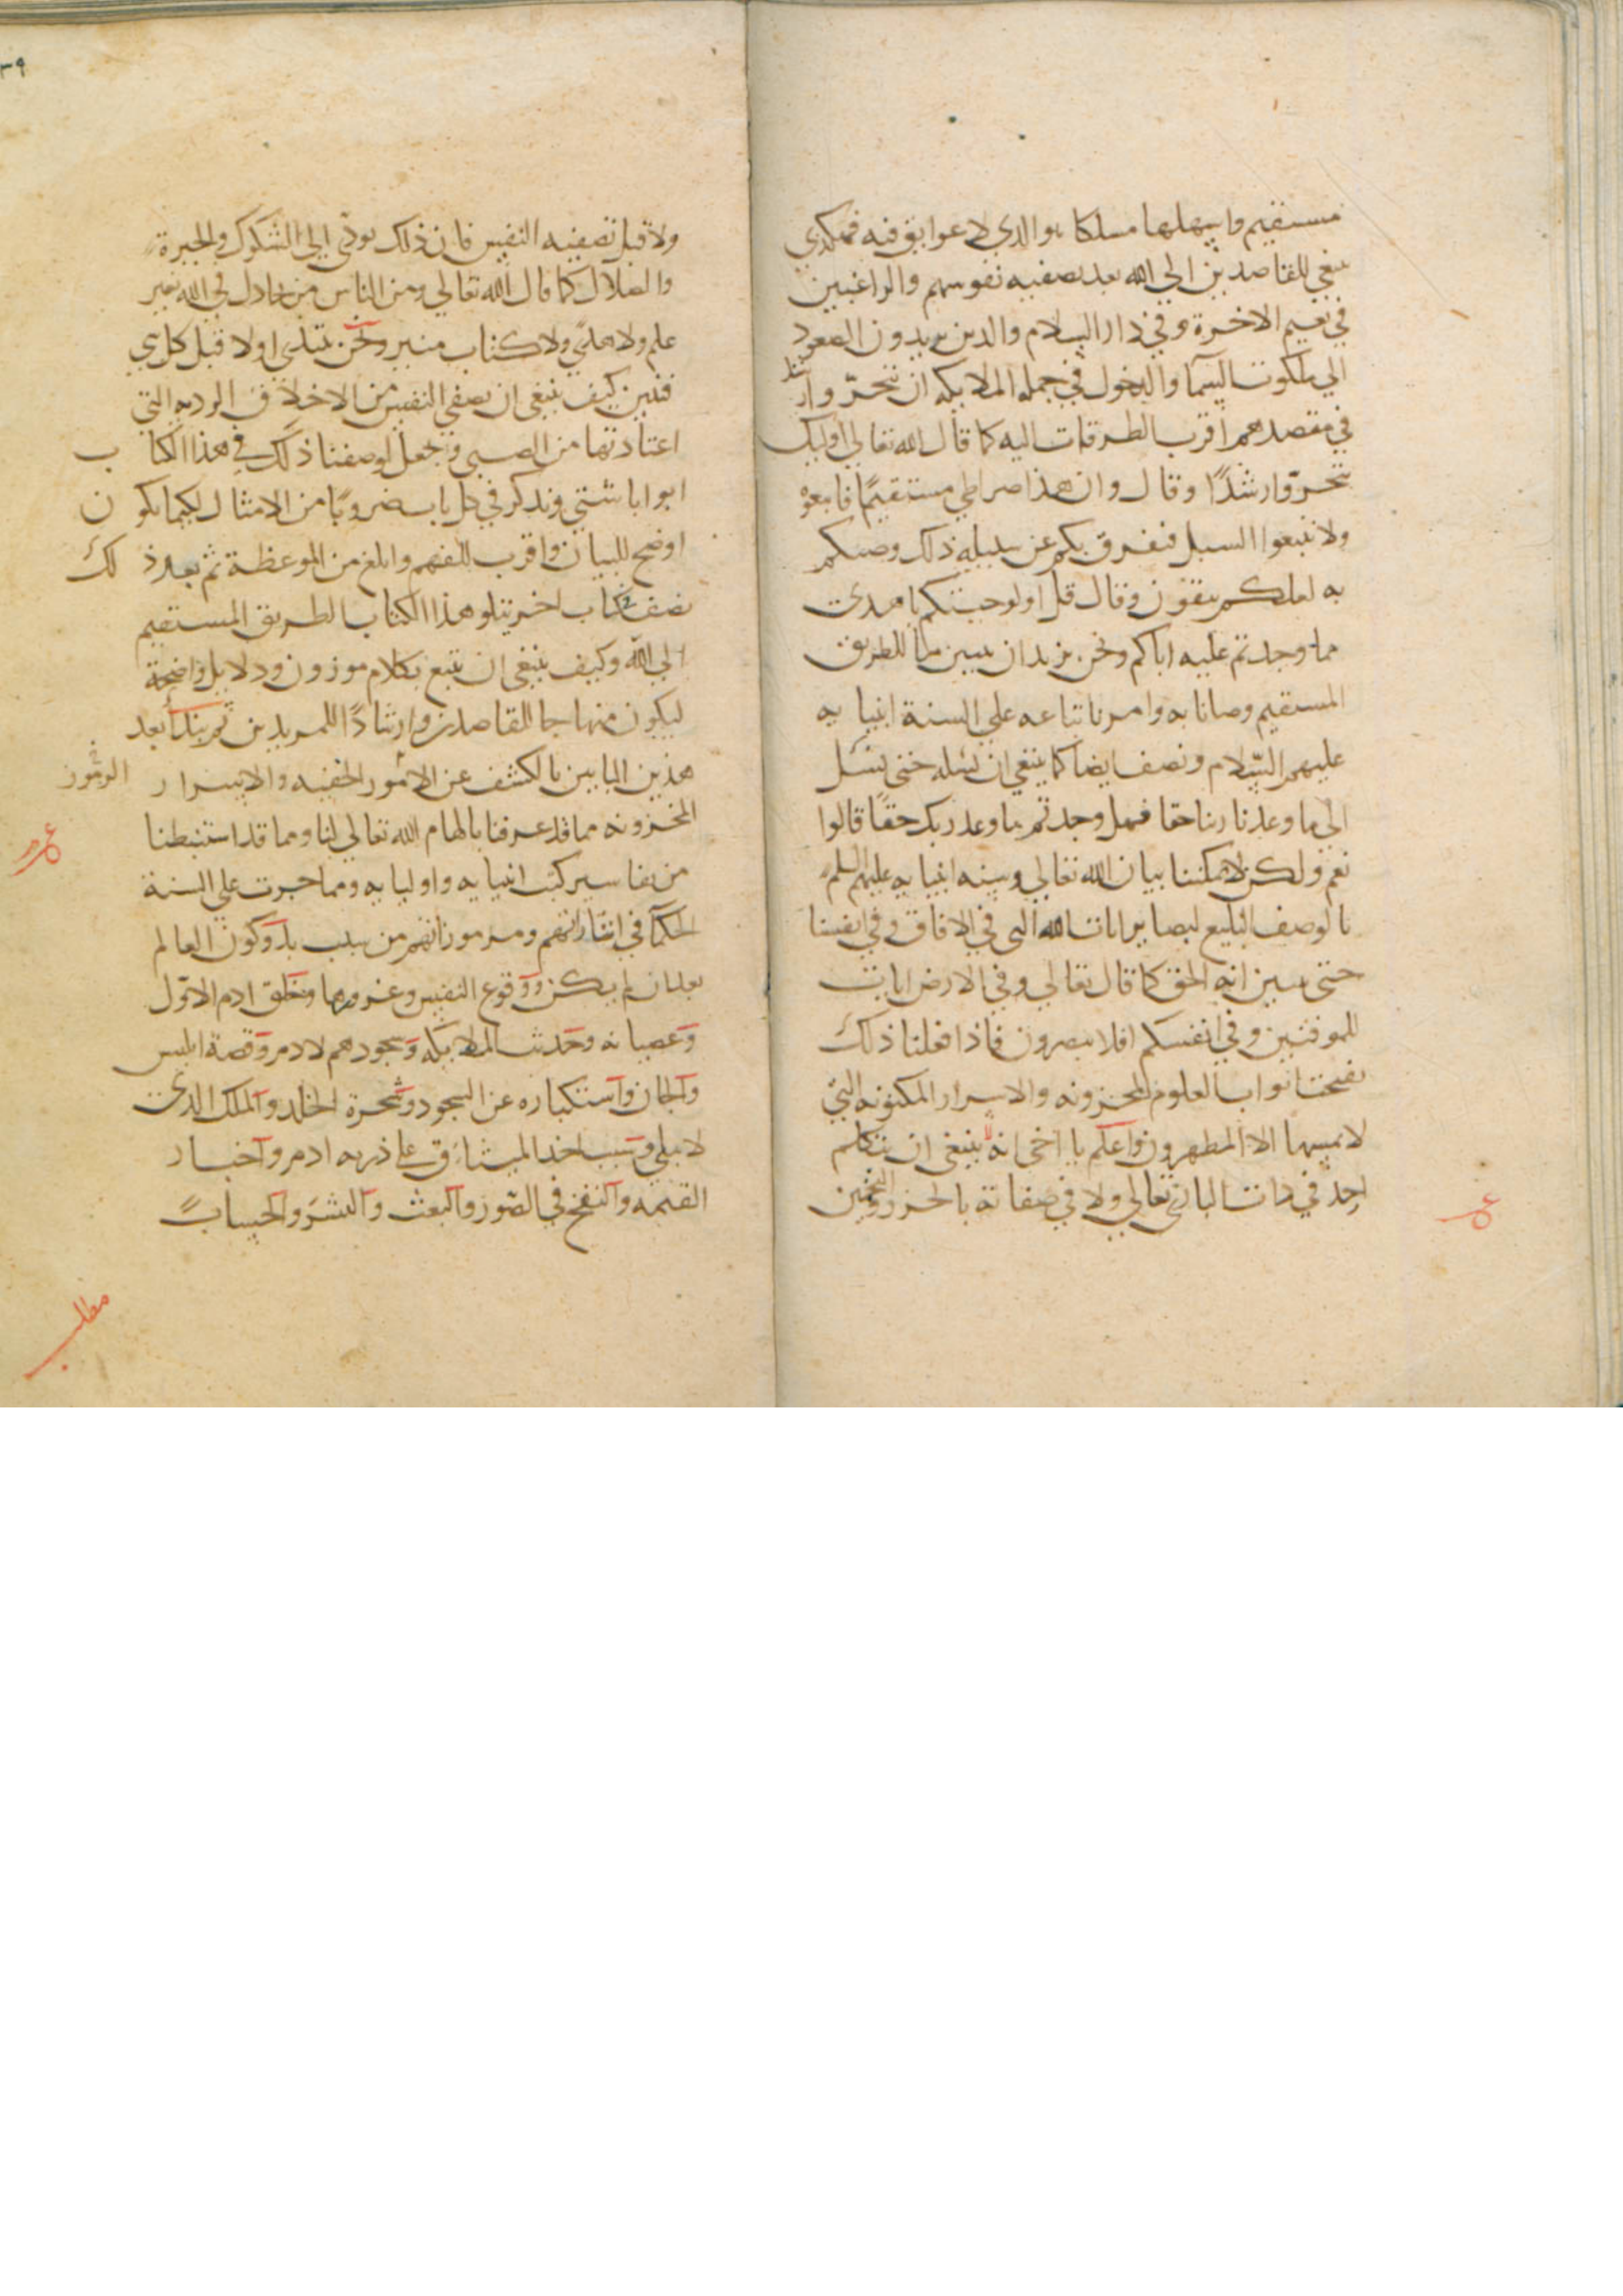 مستقيم واسهلها مسلكا هو الذي لا عوايق فيه فهكذي
ينبغي للقاصدين الي الله بعد تصفيه نفوسهم والراغبين
في نعيم الاخرة وفي دار السلام والذين يريدون الصعود
الي ملكوت السما والدخول في جملة الملايكه ان يتحروا رشد
في مقصدهم اقرب الطرقات اليه كما قال الله تعالي اوليك
تحروا رشدًا وقال وان هذا صراطي مستقيمًا فاتبعوه
ولا تتبعوا السبل فتفرق بكم عن سبيله ذلك وصيكم
به لعلكم تتقون وقال قل اولو جيتكم باهدي
مما وجدتم عليه اباكم ونحن نريد ان نبين ما الطريق
المستقيم وصانا به وامرنا باتباعه علي السنة انبيايه
عليهم السلام ونصف ايضا كما ينبغي ان نسله حتي نسل
الي ما وعدنا ربنا حقا فهل وجدتم ما وعد ربكم حقًا قالوا
نعم ولكن لا يمكننا بيان الله تعالي وسنه انبيايه عليهم السلم
بالوصف البليغ لبصاير ايات الله التي في الافاق وفي انفسنا
حتي يتبين انه الحق كما قال تعالي وفي الارض ايات
للموقنين وفي انفسكم افلا تبصرون فاذا فعلنا ذلك
تفتحت ابواب العلوم المخزونه والاسرار المكنونه التي
لا يمسها الا المطهرون واعلم يا اخي انه ينبغي ان يتكلم
احد في ذات الباري تعالي ولا في صفاته بالحزر والتخمين
٣٩
ولا قبل تصفيه النفس فان ذلك يودي الي الشكوك والحيرة
والضلال كما قال الله تعالي ومن الناس من يجادل في الله بغير
علم ولا هدًي ولا كتاب منير ونحن نبتدي اولا قبل كل شي
فنبين كيف ينبغي ان نصفي النفس من الاخلاق الرديه التي
اعتادتها من الصبي ونجعل لوصفنا ذلك في هذا الكتاب
ابوابا شتي ونذكر في كل باب ضروبًا من الامثال لكيما يكون
اوضح للبيان واقرب للفهم وابلغ من الموعظة ثم بعد ذلك
نصف في كتاب اخر يتلو هذا الكتاب الطريق المستقيم
الي الله وكيف ينبغي ان نتبع بكلام موزون ودلايل واضحة
ليكون منهاجا للقاصدين وارشادًا للمريدين ثم نبدا بعد
هذين البابين بالكشف عن الامور الخفيه والاسرار في الرموز
المخزونه مما قد عرفنا بالهام الله تعالي لنا ومما قد استنبطنا
من تفاسير كتب انبيايه واوليايه ومما جرت علي السنة
الحكما في اشاراتهم ومرموزاتهم من سبب بدو كون العالم
بعد ان لم يكن ووقوع النفس وغرورها وخلق ادم الاول
وعصيانه وحديث الملايكه وسجودهم لادم وقصة ابليس
والجان واستكباره عن السجود وشجرة الخلد والملك الذي
لا يبلي وسبب اخذ الميثاق علي ذريه ادم واخبار
القيمه والنفخ في الصور والبعث والنشر والحساب
مطلب